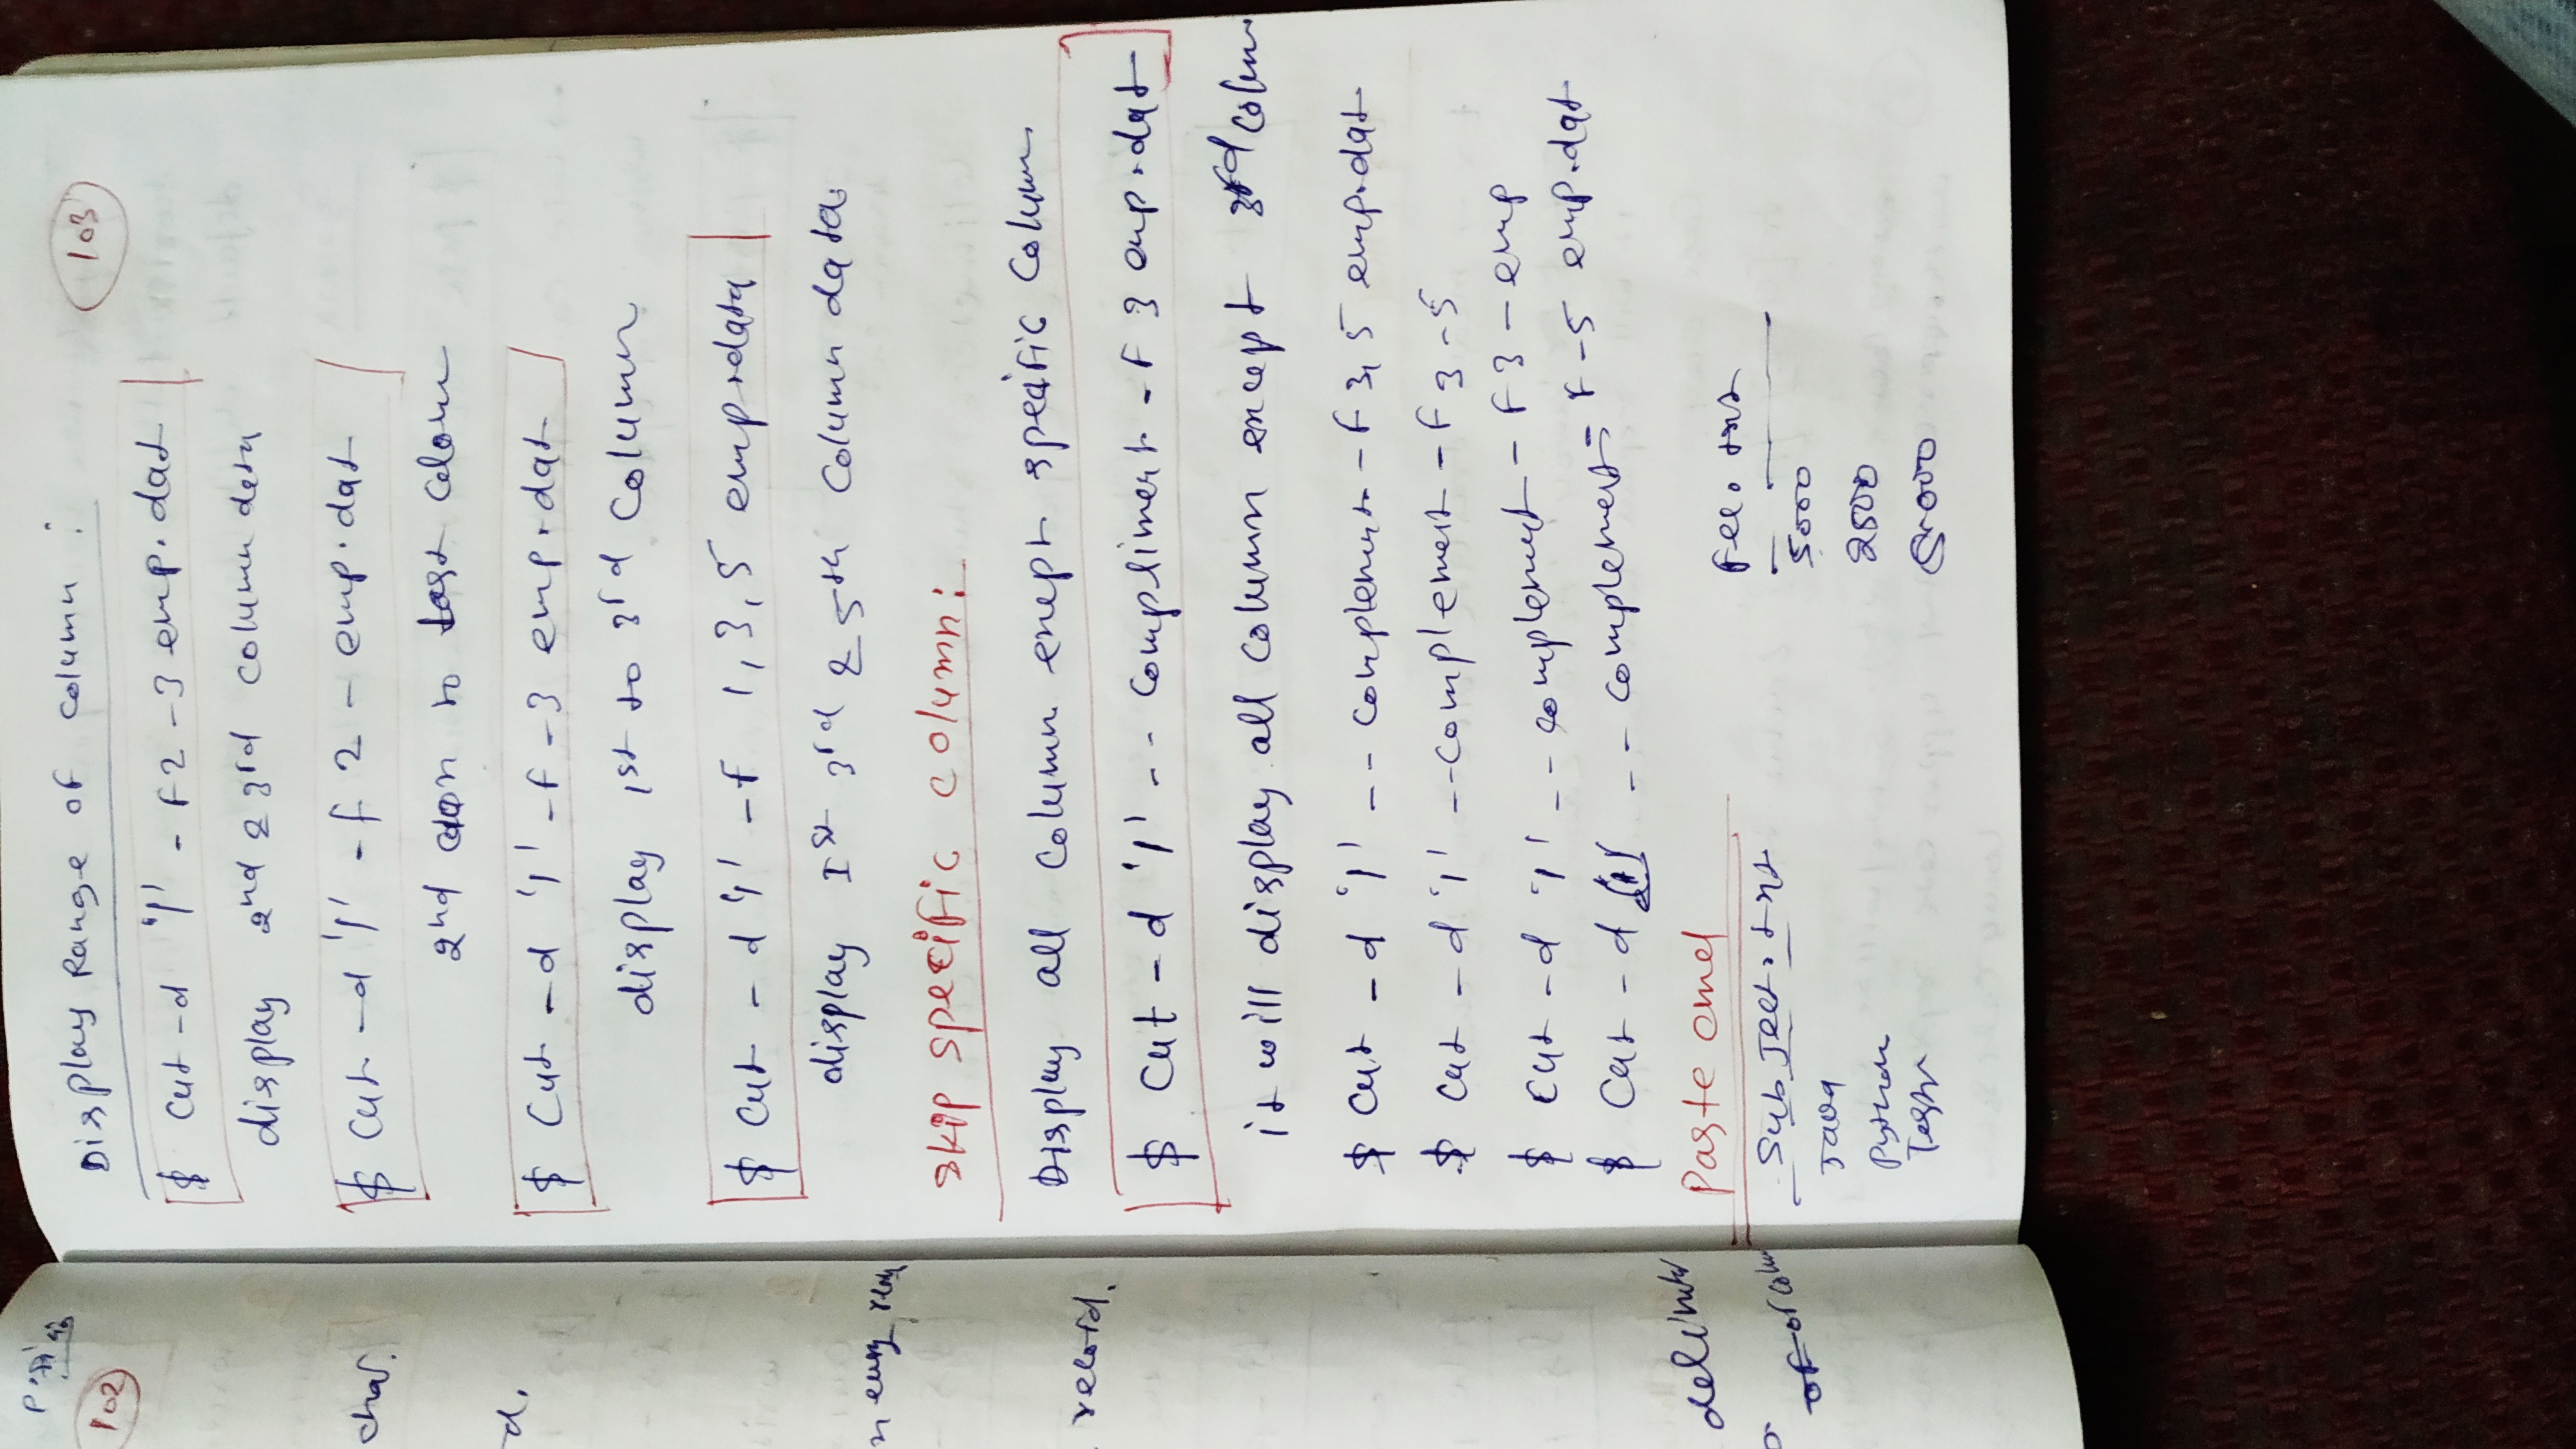 102
char.
d.
n every
record.
delimiter
of or colum
103
Display Range of column :
$ cut -d '|' - f2 -3 emp.dat
display 2nd & 3rd column data
$ cut -d '|' - f 2 - emp.dat
2nd to last colom
$ cut -d '|' -f -3 emp.dat
display 1st to 3rd column
$ cut -d '|' -f 1, 3, 5 emp.data
display Ist 3rd & 5th column data.
skip specific column:
Display all column exept specific column
$ cut -d '|' -- compliment -f 3 emp.dat
it will display all column except 3rd colum
$ cut -d '|' -- complement -f 3, 5 emp.dat
$ cut -d '|' --complement -f 3 -5
$ cut -d '|' -- complement - f 3 - emp
$ cut -d -- complement - f -5 emp.dat
Paste cmd
Subject.txt Fee.txt
Java 5000
Python 2500